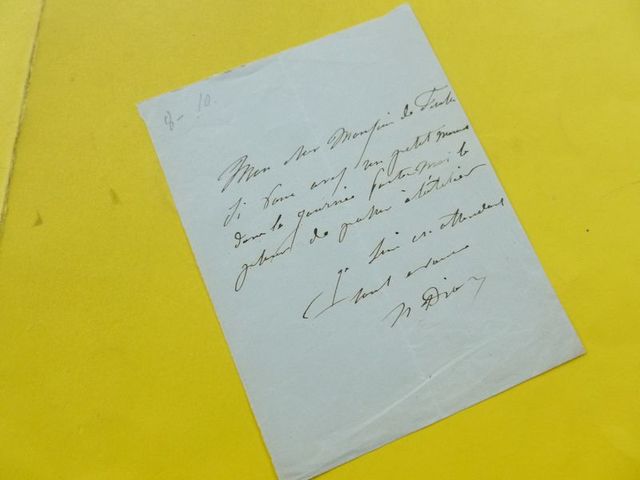 8- 10.
Mon cher Monsieur de
Si vous avez un petit moment
dans la journée faites moi le
plaisir de passer à l'atelier
Je suis en attendant
tout à vous
N Diaz